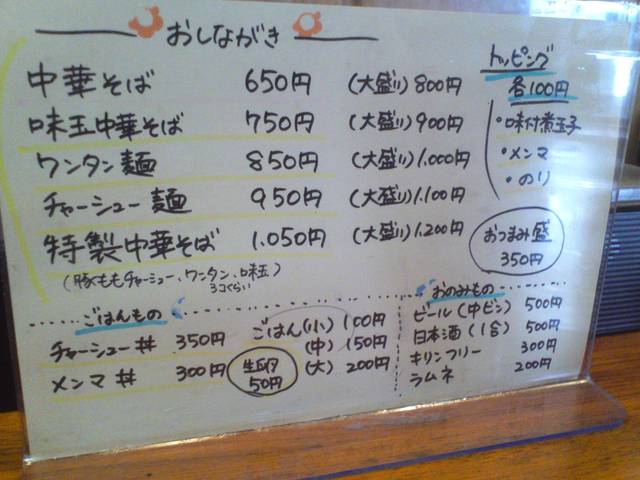 おしながき
中華そば 650円 (大盛り) 800円
味玉中華そば 750円 (大盛り) 900円
ワンタン麺 850円 (大盛り) 1.000円
チャーシュー麺 950円 (大盛り) 1.100円
特製中華そば 1.050円 (大盛り) 1.200円
(豚ももチャーシュー、ワンタン、味玉)
3コぐらい
トッピング
各100円
・味付煮玉子
・メンマ
・のり
おつまみ盛
350円
ごはんもの
チャーシュー丼 350円
メンマ丼 300円
ごはん(小) 100円
(中) 150円
(大) 200円
生卵
50円
おのみもの
ビール(中ビン) 500円
日本酒(1合) 500円
キリンフリー 300円
ラムネ 200円